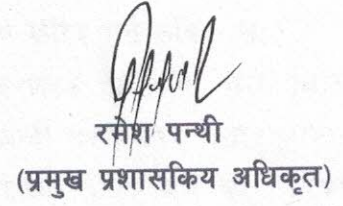 रमेश पन्थी
(प्रमुख प्रशासकिय अधिकृत)